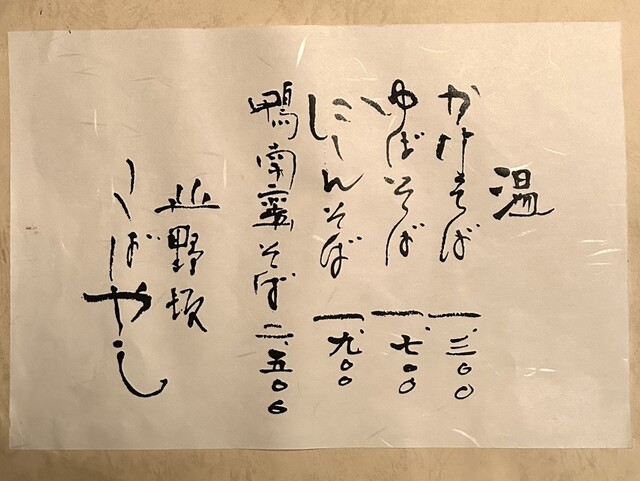 温
かけそば 一、三〇〇
ゆばそば 一、七〇〇
にしんそば 一、九〇〇
鴨南蛮そば 二、五〇〇
狸野坂
こばやし